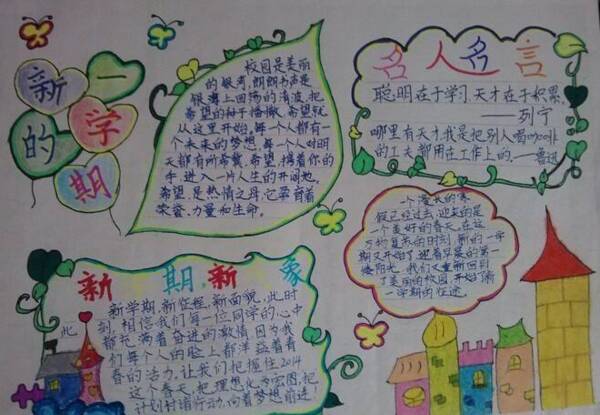 新一
的学
期
校园是美丽
的银湾,朗朗书声是
银湾上回荡的清波,把
希望的种子播撒,希望就
从这里开始,每一个人都有一
个未来的梦想,每一个人对明
天都有所希冀,希望,携着你的
手,进入一片人生的开阔地,
希望,是热情之母,它孕育着
荣誉、力量和生命。
名人名言
聪明在于学习,天才在于积累,
——列宁
哪里有天才,我是把别人喝咖啡
的工夫都用在工作上的.——鲁迅
一个漫长的寒
假已经过去,迎来的是
一个美好的春天,在这
万物复苏的时刻,新的一学
期又开始了,迎着早晨的第一
缕阳光,我们又重新回到
了美丽的校园,开始了新
一学期的征途。
新学期,新气象
新学期,新征程,新面貌,此时
此刻,相信我们每一位同学的心中
都充满着奋进的激情,因为我
们每个人的脸上都洋溢着青
春的活力,让我们把握住2014
这个春天,把理想化为宏图,把
计划付诸行动,向着梦想前进!